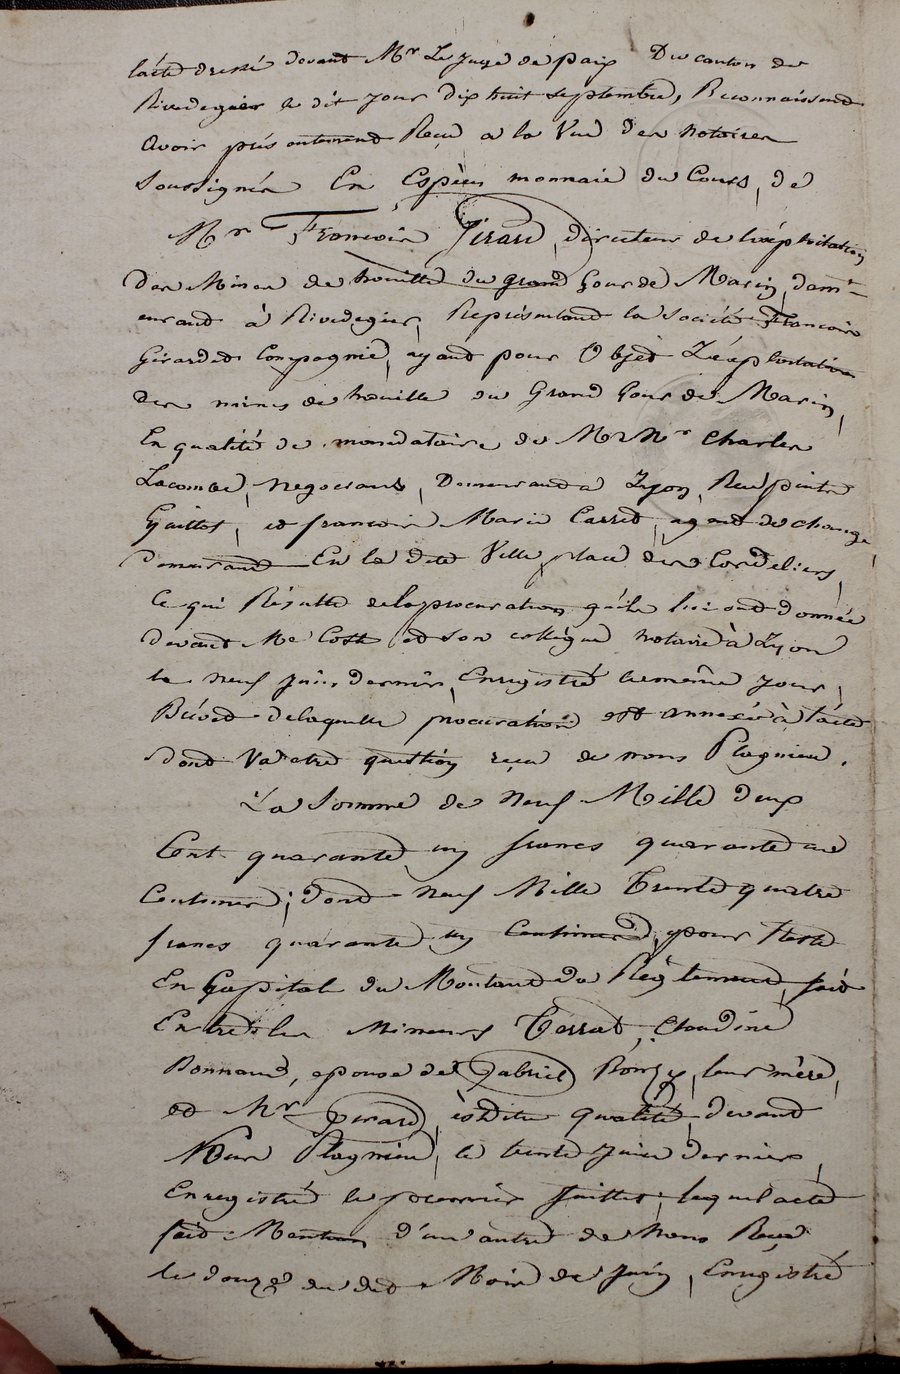 l'acte dressé devant Mr Le juge de paix Du canton de
Rivedegier le dit jour dix huit septembre, Reconnaissend
Avoir présentement Reçu a la Vue des notaires
Soussignés En Espèces monnaie du Cours, de
Mr François Girard, directeur de l'exploitation
Des Mines de houille du grand Gour de Marin, dem-
eurant à Rivedegier, Représentand la Société François
Girard et Compagnie, ayand pour Objet L'exploitation
Des mines de houille du Grand Gour de Marin,
En qualité de mandataire de MM rs Charles
Lacombe, negociant, Demeurand a Lyon, Rue pointe
Guillot, et françois Marie Carret, agend de change,
Demeurand En la dite Ville, place des Cordeliers,
Ce qui Résulte de la procuration qu'ils lui ont donnée
devant Me Coste et son collègue notaire à Lyon
le neuf juin dernier, Enregistré le même jour,
Brévet de laquelle procuration est annexé à l'acte
dont Va etre question reçu de nous Plagnieu.
La Somme de Neuf Mille deux
Cent quarante un francs quarante un
Centimes; dont neuf Mille Trente quatre
francs quarante un Centimes, pour Reste
En Capital du Montand du Réglement, fait
Entre les Mineurs Terrat, Claudine
Bonnand, epouse de Gabriel, leur mère,
et Mr Girard, es dite qualité, devand
Nous Plagnieu, le trente juin dernier,
Enregistré le premier Juillet, lequel acte
fait Mention d'un autre de Nous Reçu
le douze du dit Mois de juin, Enregistré